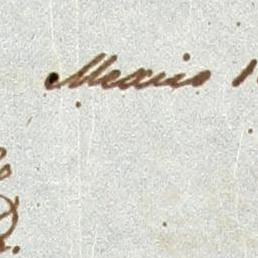 Mexico 1